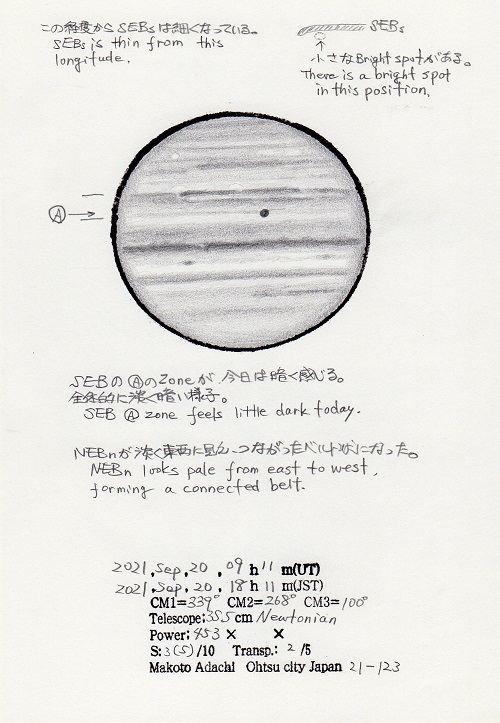 この経度からSEBsは細くなっている。
SEBs is thin from this
longitude.
SEBs
小さなBright spotがある。
There is a bright spot
in this position.
Ⓐ
SEBのⒶのZoneが、今日は暗く感じる。
全体的に淡く暗い様子。
SEB Ⓐ zone feels little dark today.
NEBnが淡く東西に見え、つながったベルト状になった。
NEBn looks pale from east to west,
forming a connected belt.
2021, Sep, 20, 09 h 11 m(UT)
2021, Sep, 20, 18 h 11 m(JST)
CM1=339° CM2=268° CM3=100°
Telescope; 355 cm Newtonian
Power; 453 × ×
S: 3(5)/10 Transp.: 2 /5
Makoto Adachi Ohtsu city Japan 21-123